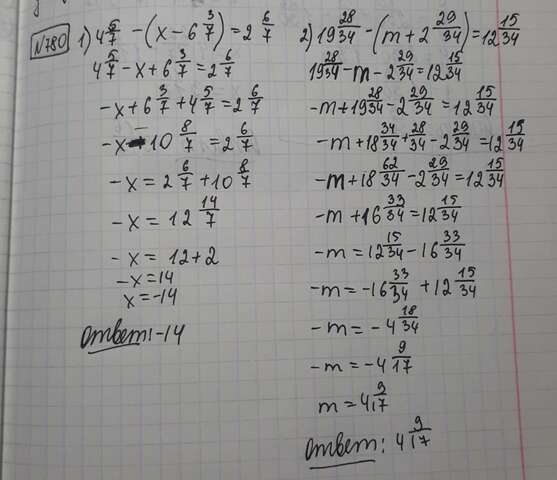 №780
1) 4 5/7 - (x - 6 3/7) = 2 6/7
4 5/7 - x + 6 3/7 = 2 6/7
-x + 6 3/7 + 4 5/7 = 2 6/7
-x - 10 8/7 = 2 6/7
-x = 2 6/7 + 10 8/7
-x = 12 14/7
-x = 12 + 2
-x = 14
x = -14
Ответ: -14
2) 19 28/34 - (m + 2 29/34) = 12 15/34
19 28/34 - m - 2 29/34 = 12 15/34
-m + 19 28/34 - 2 29/34 = 12 15/34
-m + 18 34/34 + 28/34 - 2 29/34 = 12 15/34
-m + 18 62/34 - 2 29/34 = 12 15/34
-m + 16 33/34 = 12 15/34
-m = 12 15/34 - 16 33/34
-m = -16 33/34 + 12 15/34
-m = -4 18/34
-m = -4 9/17
m = 4 9/17
Ответ: 4 9/17